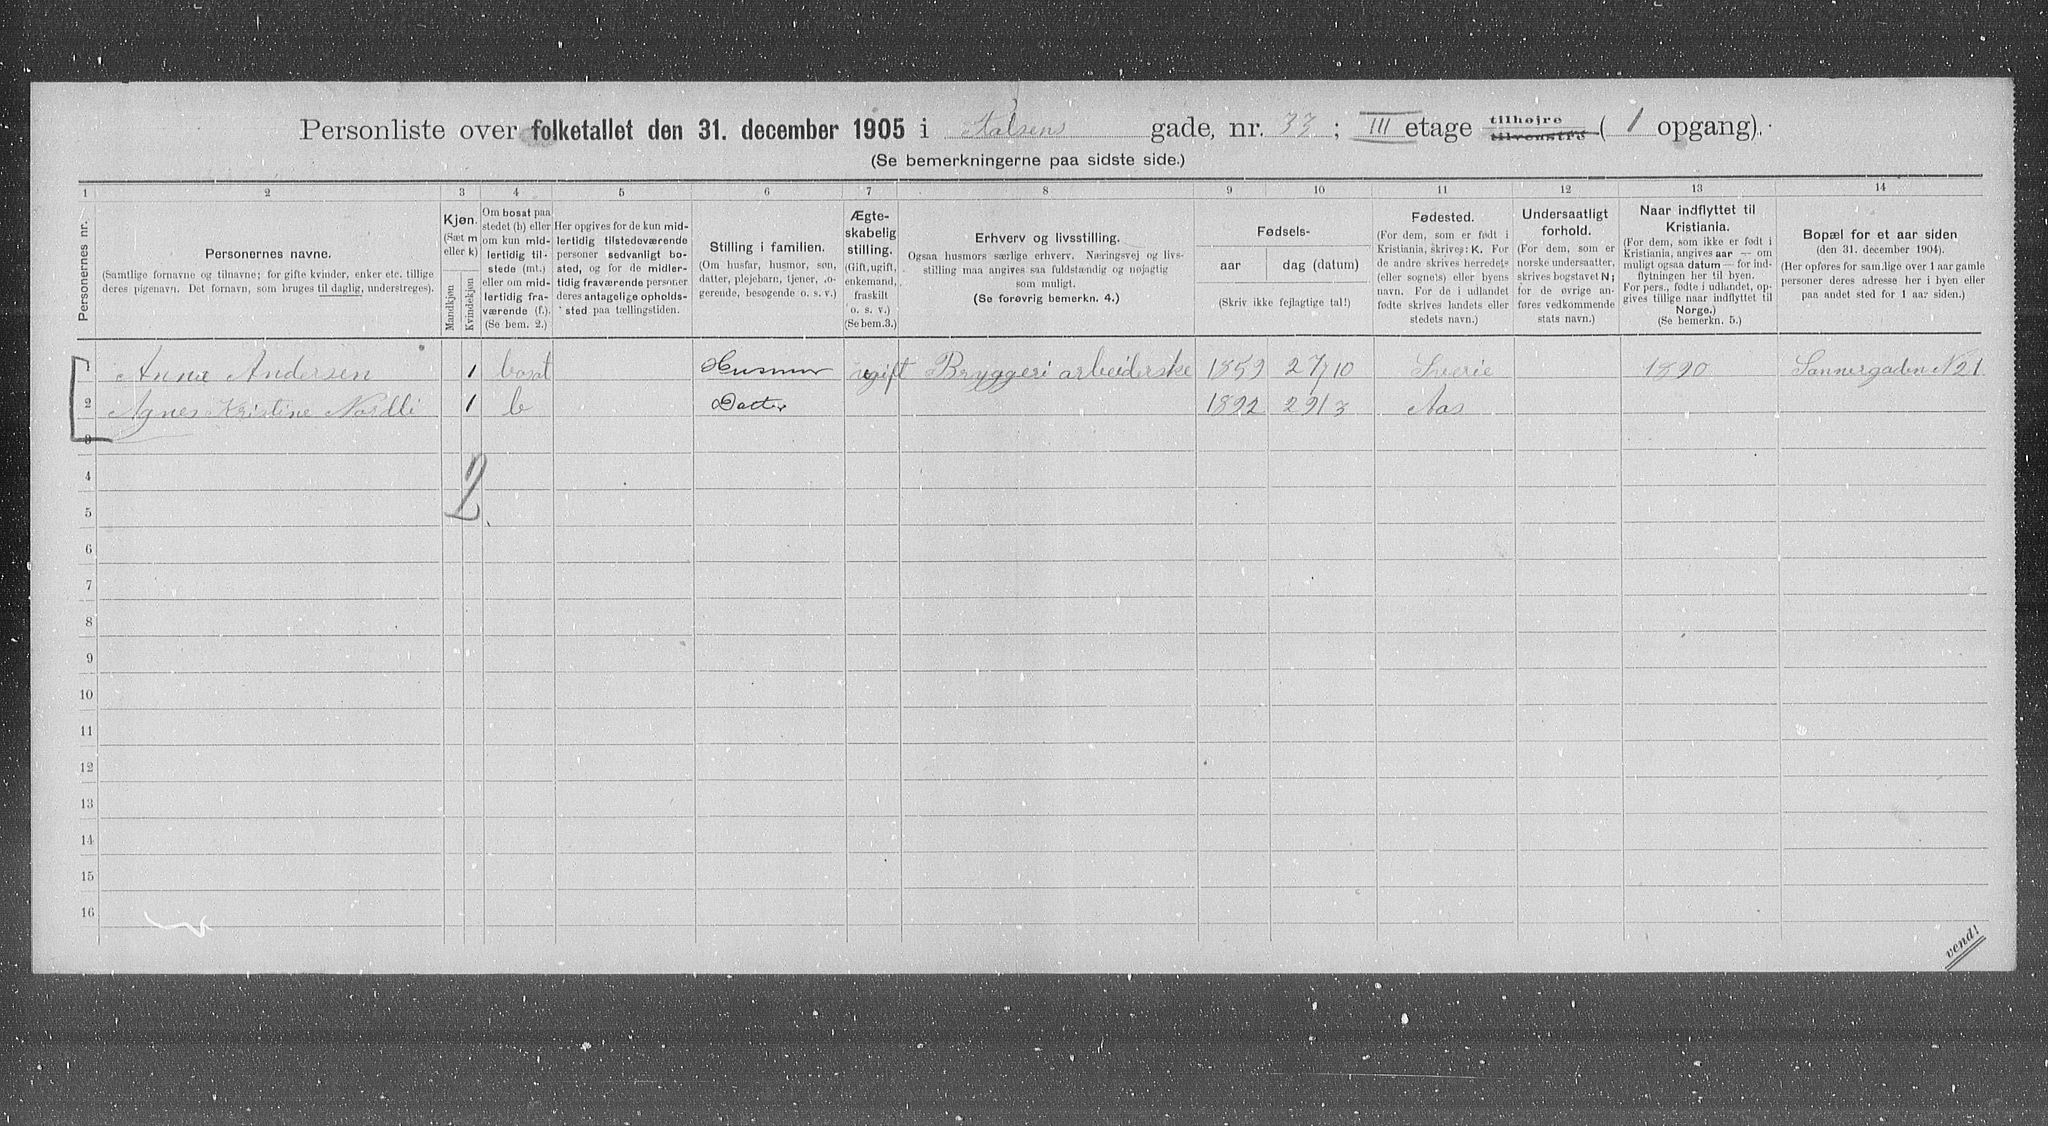 Personliste over folketallet den 31. december 1905 i Falsens gade, nr. 33; III etage tilhøjre tilvenstre ( 1 opgang).
(Se bemerkningerne paa sidste side.)
1 2 3 4 5 6 7 8 9 10 11 12 13 14
Personernes nr.
Personernes navne.
(Samtlige fornavne og tilnavne; for gifte kvinder, enker etc. tillige
deres pigenavn. Det fornavn, som bruges til daglig, understreges).
Kjøn.
(Sæt m
eller k)
Mandkjøn
Kvindekjøn
Om bosat paa
stedet (b) eller
om kun mid-
lertidig til-
stede (mt.)
eller om mid-
lertidig fra-
værende (f.).
(Se bem. 2.)
Her opgives for de kun mid-
lertidig tilstedeværende
personer sedvanligt bo-
sted, og for de midler-
tidig fraværende personer
deres antagelige opholds-
sted paa tællingstiden.
Stilling i familien.
(Om husfar, husmor, søn,
datter, plejebarn, tjener, lo-
gerende, besøgende o. s. v.)
Ægte-
skabelig
stilling.
(Gift, ugift,
enkemand,
fraskilt
o. s. v.)
(Se bem.3.)
Erhverv og livsstilling.
Ogsaa husmors særlige erhverv. Næringsvej og livs-
stilling maa angives saa fuldstændig og nøjagtig
som muligt.
(Se forøvrig bemerkn. 4.)
Fødsels-
aar
dag (datum)
(Skriv ikke fejlagtige tal!)
Fødested.
(For dem, som er født i
Kristiania, skrives: K. For
de andre skrives herredets
(eller sognets) eller byens
navn. For de i udlandet
fødte skrives landets eller
stedets navn.)
Undersaatligt
forhold.
(For dem, som er
norske undersaatter,
skrives bogstavet N;
for de øvrige an-
føres vedkommende
stats navn.)
Naar indflyttet til
Kristiania.
(For dem, som ikke er født i
Kristiania, angives aar — om
muligt ogsaa datum — for ind-
flytningen her til byen.
For pers., fødte i udlandet, op-
gives tillige naar indflyttet til
Norge.)
(Se bemerkn. 5.)
Bopæl for et aar siden
(den 31. december 1904).
(Her opføres for samlige over 1 aar gamle
personer deres adresse her i byen eller
paa andet sted for 1 aar siden.)
1 Anna Andersen 1 bosat Husmor ugift Bryggeri arbeiderske 1859 27/10 Sverie 1890 Sannergaden N 21
2 Agnes Kristine Nordli 1 b Datter 1892 29/3 Aas
3
4
2
5
6
7
8
9
10
11
12
13
14
15
16
vend!